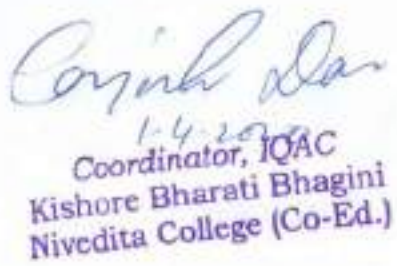 Das
Coordinator, IQAC
Kishore Bharati Bhagini
Nivedita College (Co-Ed.)